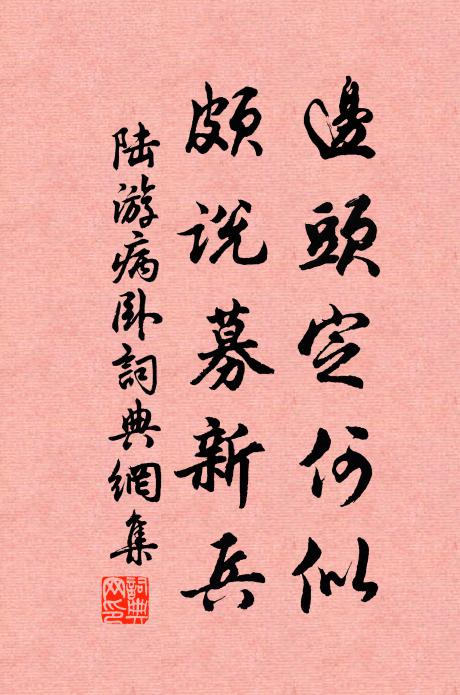 邊頭定何似
頗説募新兵
陆游病卧詞典網集
詞典网印